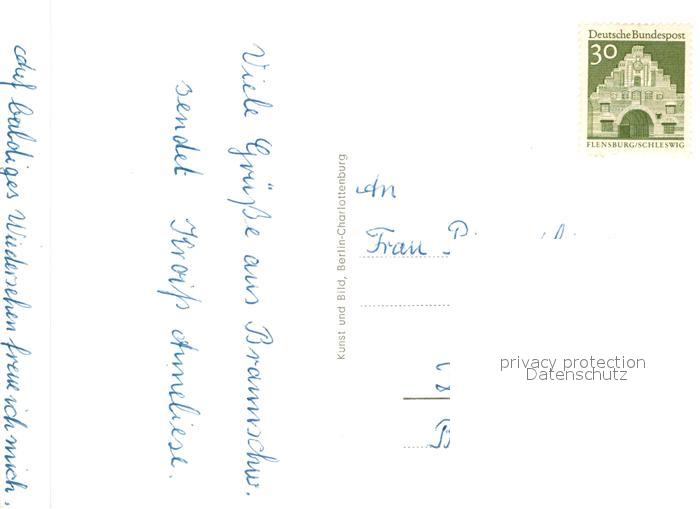 Viele Grüße aus Braunschw.
sendet Kroiß Anneliese.
Auf baldiges Wiedersehen freue ich mich,
Kunst und Bild, Berlin-Charlottenburg
Deutsche Bundespost
30
FLENSBURG/SCHLESWIG
An
Frau P.
privacy protection
Datenschutz